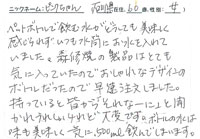 ニックネーム:ピンクちゃん 石川県在住、60歳、性別(女)
ペットボトルで飲む水がどうしても美味しく
感じられずいつも水筒にお水を入れて
いました。森修焼の製品はとても
気に入っていたのでおしゃれなデザインの
ボトルだったので早速注文しました。
持っていると皆から「それなーに」と聞
かれうれしいやけど大変です。ボトルの水は
味も美味しく一気に、500ml飲んでしまいます。